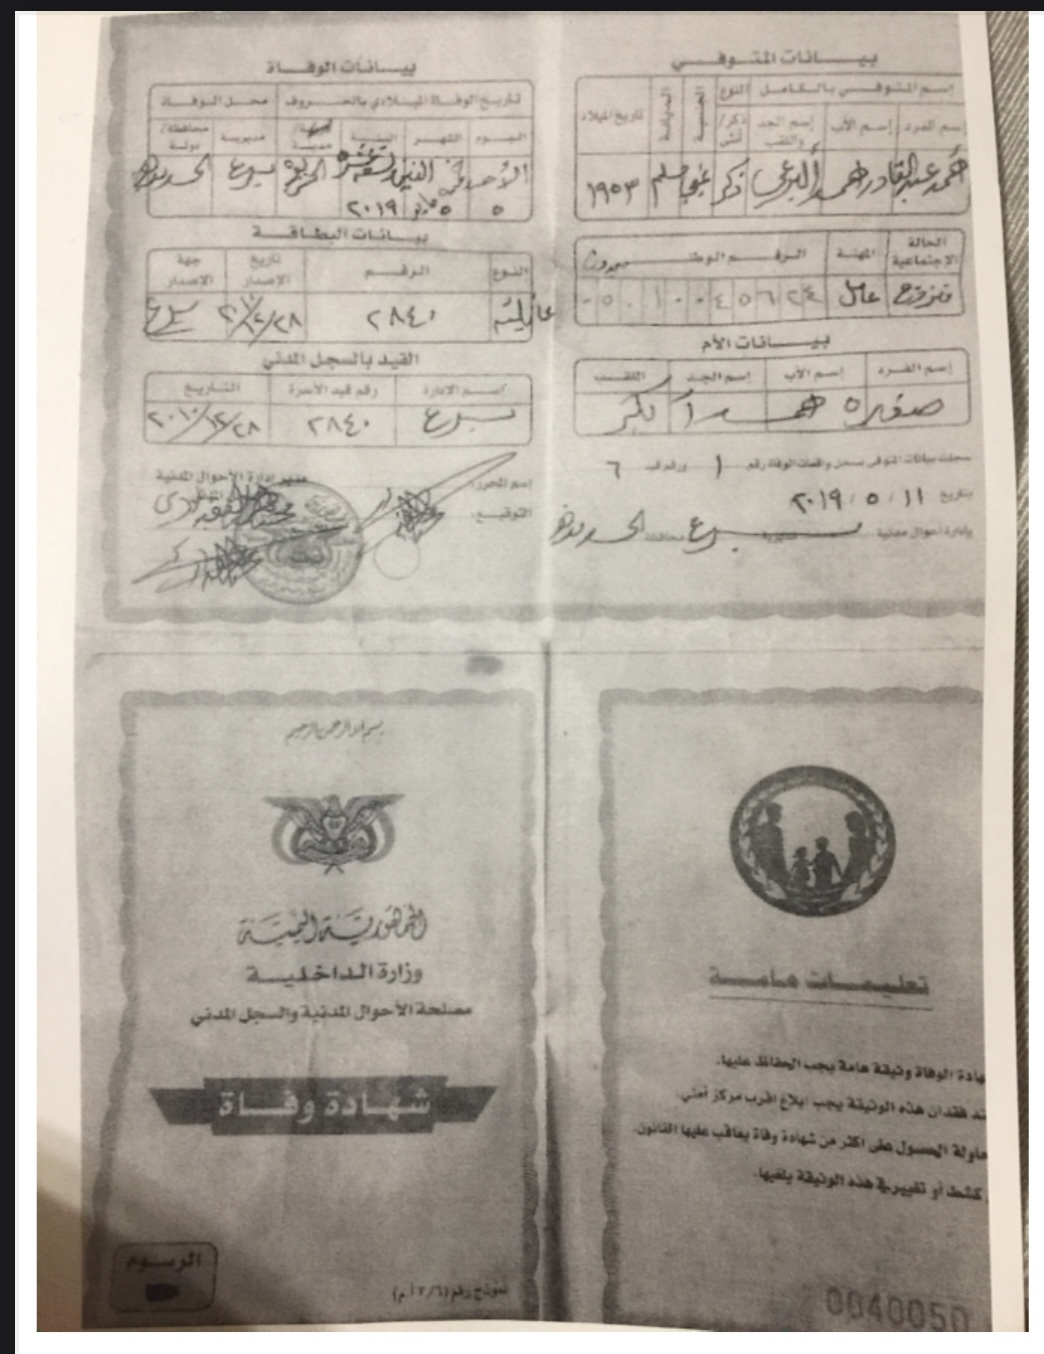 بيانات المتوفي
إسم المتوفي بالكامل النوع الجنسية الديانة تاريخ الميلاد
إسم الفرد إسم الأب إسم الجد واللقب ذكر/أنثى
عبدالقادر ذكر يمني مسلم ١٩٥٣
الحالة الإجتماعية المهنة الرقم الوطني بدون
متزوج عامل
بيانات الأم
إسم الفرد إسم الأب إسم الجد اللقب
سجلت بيانات المتوفى ضمن واقعات الوفاة رقم ١ ورقم قيد ٦
بتاريخ ١١ / ٥ / ٢٠١٩
بإدارة أحوال مدنية برع مديرية محافظة الحديدة
بيانات الوفاة
تاريخ الوفاة الميلادي بالحروف محل الوفاة
اليوم الشهر السنة مدينة مديرية محافظة/دولة
الأحد برع الحديدة
٥ ٥ مايو ٢٠١٩
بيانات البطاقة
النوع الرقم تاريخ الإصدار جهة الإصدار
عائلية ٢٨٤٠ برع
القيد بالسجل المدني
إسم الإدارة رقم قيد الأسرة التاريخ
برع ٢٨٤٠ ٢٠١٠/١٢/٢٨
إسم المحرر: مدير إدارة الأحوال المدنية
التوقيع:
بسم الله الرحمن الرحيم
الجمهورية اليمنية
وزارة الداخلية
مصلحة الأحوال المدنية والسجل المدني
شهادة وفاة
الرسوم
نموذج رقم (٢/٦/أ.م)
تعليمات هامة
هادة الوفاة وثيقة هامة يجب الحفاظ عليها.
ند فقدان هذه الوثيقة يجب ابلاغ اقرب مركز أمني.
حاولة الحصول على اكثر من شهادة وفاة يعاقب عليها القانون.
كشط أو تغيير في هذه الوثيقة يلغيها.
0040050